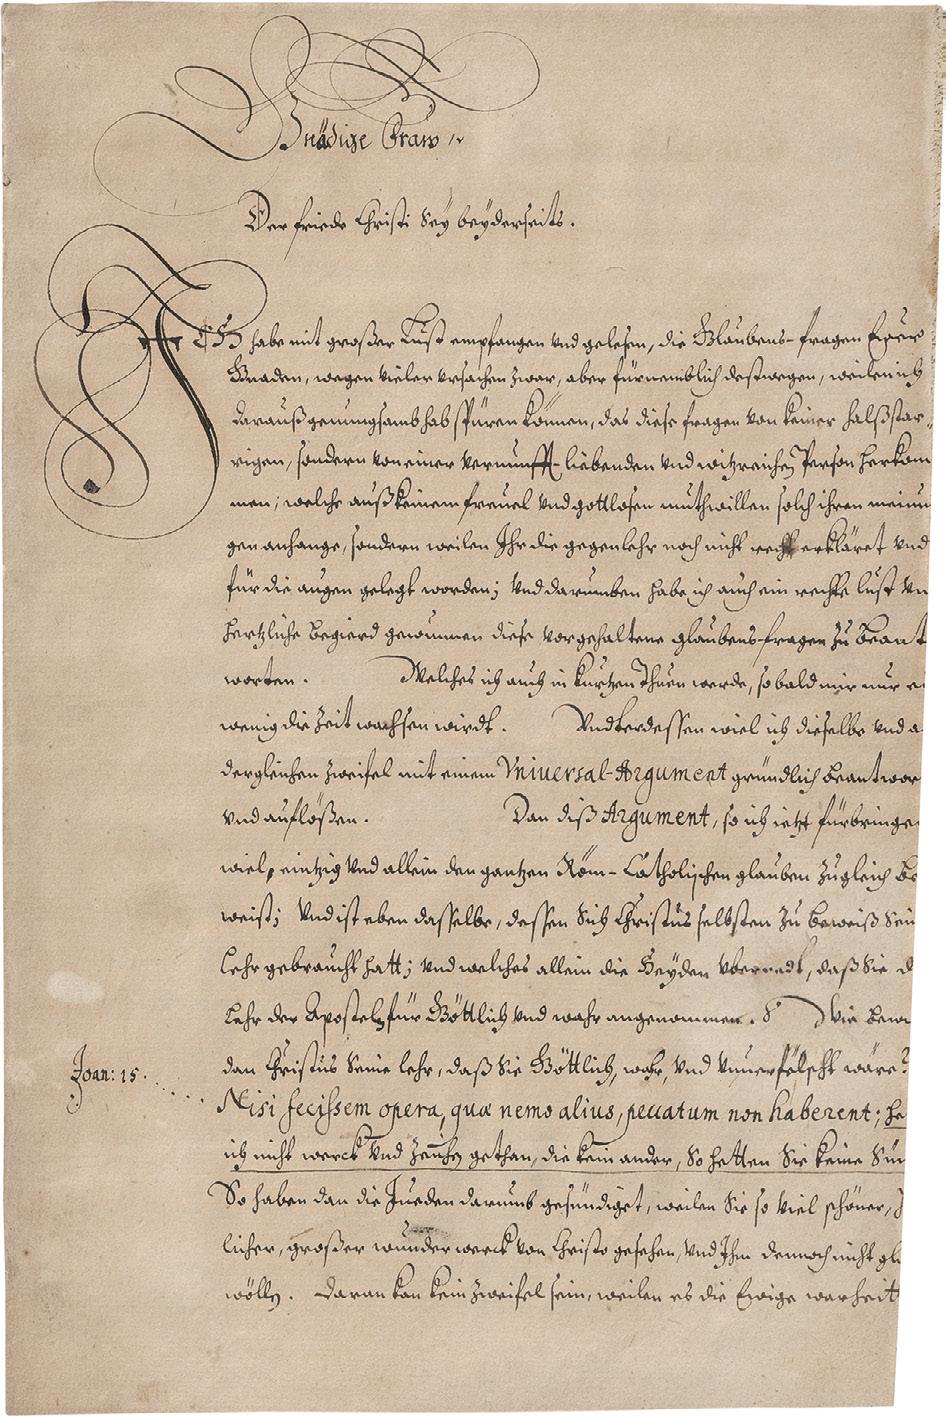 Gnädige Fraw /.
Der friede Christi Sey beÿderseits.
ICH habe mit großer Lust empfangen vnd gelesen, die Glaubens-fragen Ewer
Gnaden, wegen vieler vrsachen zwar, aber fürnemblich destwegen, weilen ich
darauß genungsamb hab spüren können, das diese fragen von keiner halßstar,,
rigen, sondern von einer vernunfft-liebenden vnd witzreichen Person herkom
men; welche auß keinem freuel vnd gottlosen muthwillen solch ihren meinun
gen anhange, sondern weilen Ihr die gegenlehr noch nicht recht erkläret vnd
für die augen gelegt worden; Vnd darumben habe ich auch ein rechte lust vn
hertzliche begierd gewunnen diese vorgehaltene glaubens-fragen zu beant
worten. Welches ich auch in kurtzen Thuen werde, so bald mir nur e
wenig die Zeit wachsen wirdt. Vndterdessen wiel ich dieselbe vnd a
dergleichen Zweifel mit einem Vniversal-Argument gründlich beantwor
vnd auflößen. Dan diß Argument, so ich ietzt fürbringe
wiel, eintzig vnd allein den gantzen Röm-Catholischen glauben zugleich be
weist; Vnd ist eben dasselbe, dessen Sich Christus selbsten zu beweiß Sein
Lehr gebraucht hatt; vnd welches allein die Heyden vberredt, daß Sie d
Lehr der Apostel für Göttlich vnd wahr angenommen. Wie bew
dan Christus Seine lehr, daß Sie Göttlich, wahr, vnd vnuerfälscht wäre?
Joan: 15.
Nisi fecissem opera, quæ nemo alius, peccatum non haberent; he
ich nicht werck vnd Zeichen gethan, die kein ander, So hetten Sie keine Sün
So haben dan die Jueden darumb gesündiget, weilen Sie so viel schöner,
licher, großer wunderwerck von Christo gesehen, vnd Ihm dennoch nicht gl
wöllen. Daran kan kein Zweifel sein, weilen es die Ewige warheit